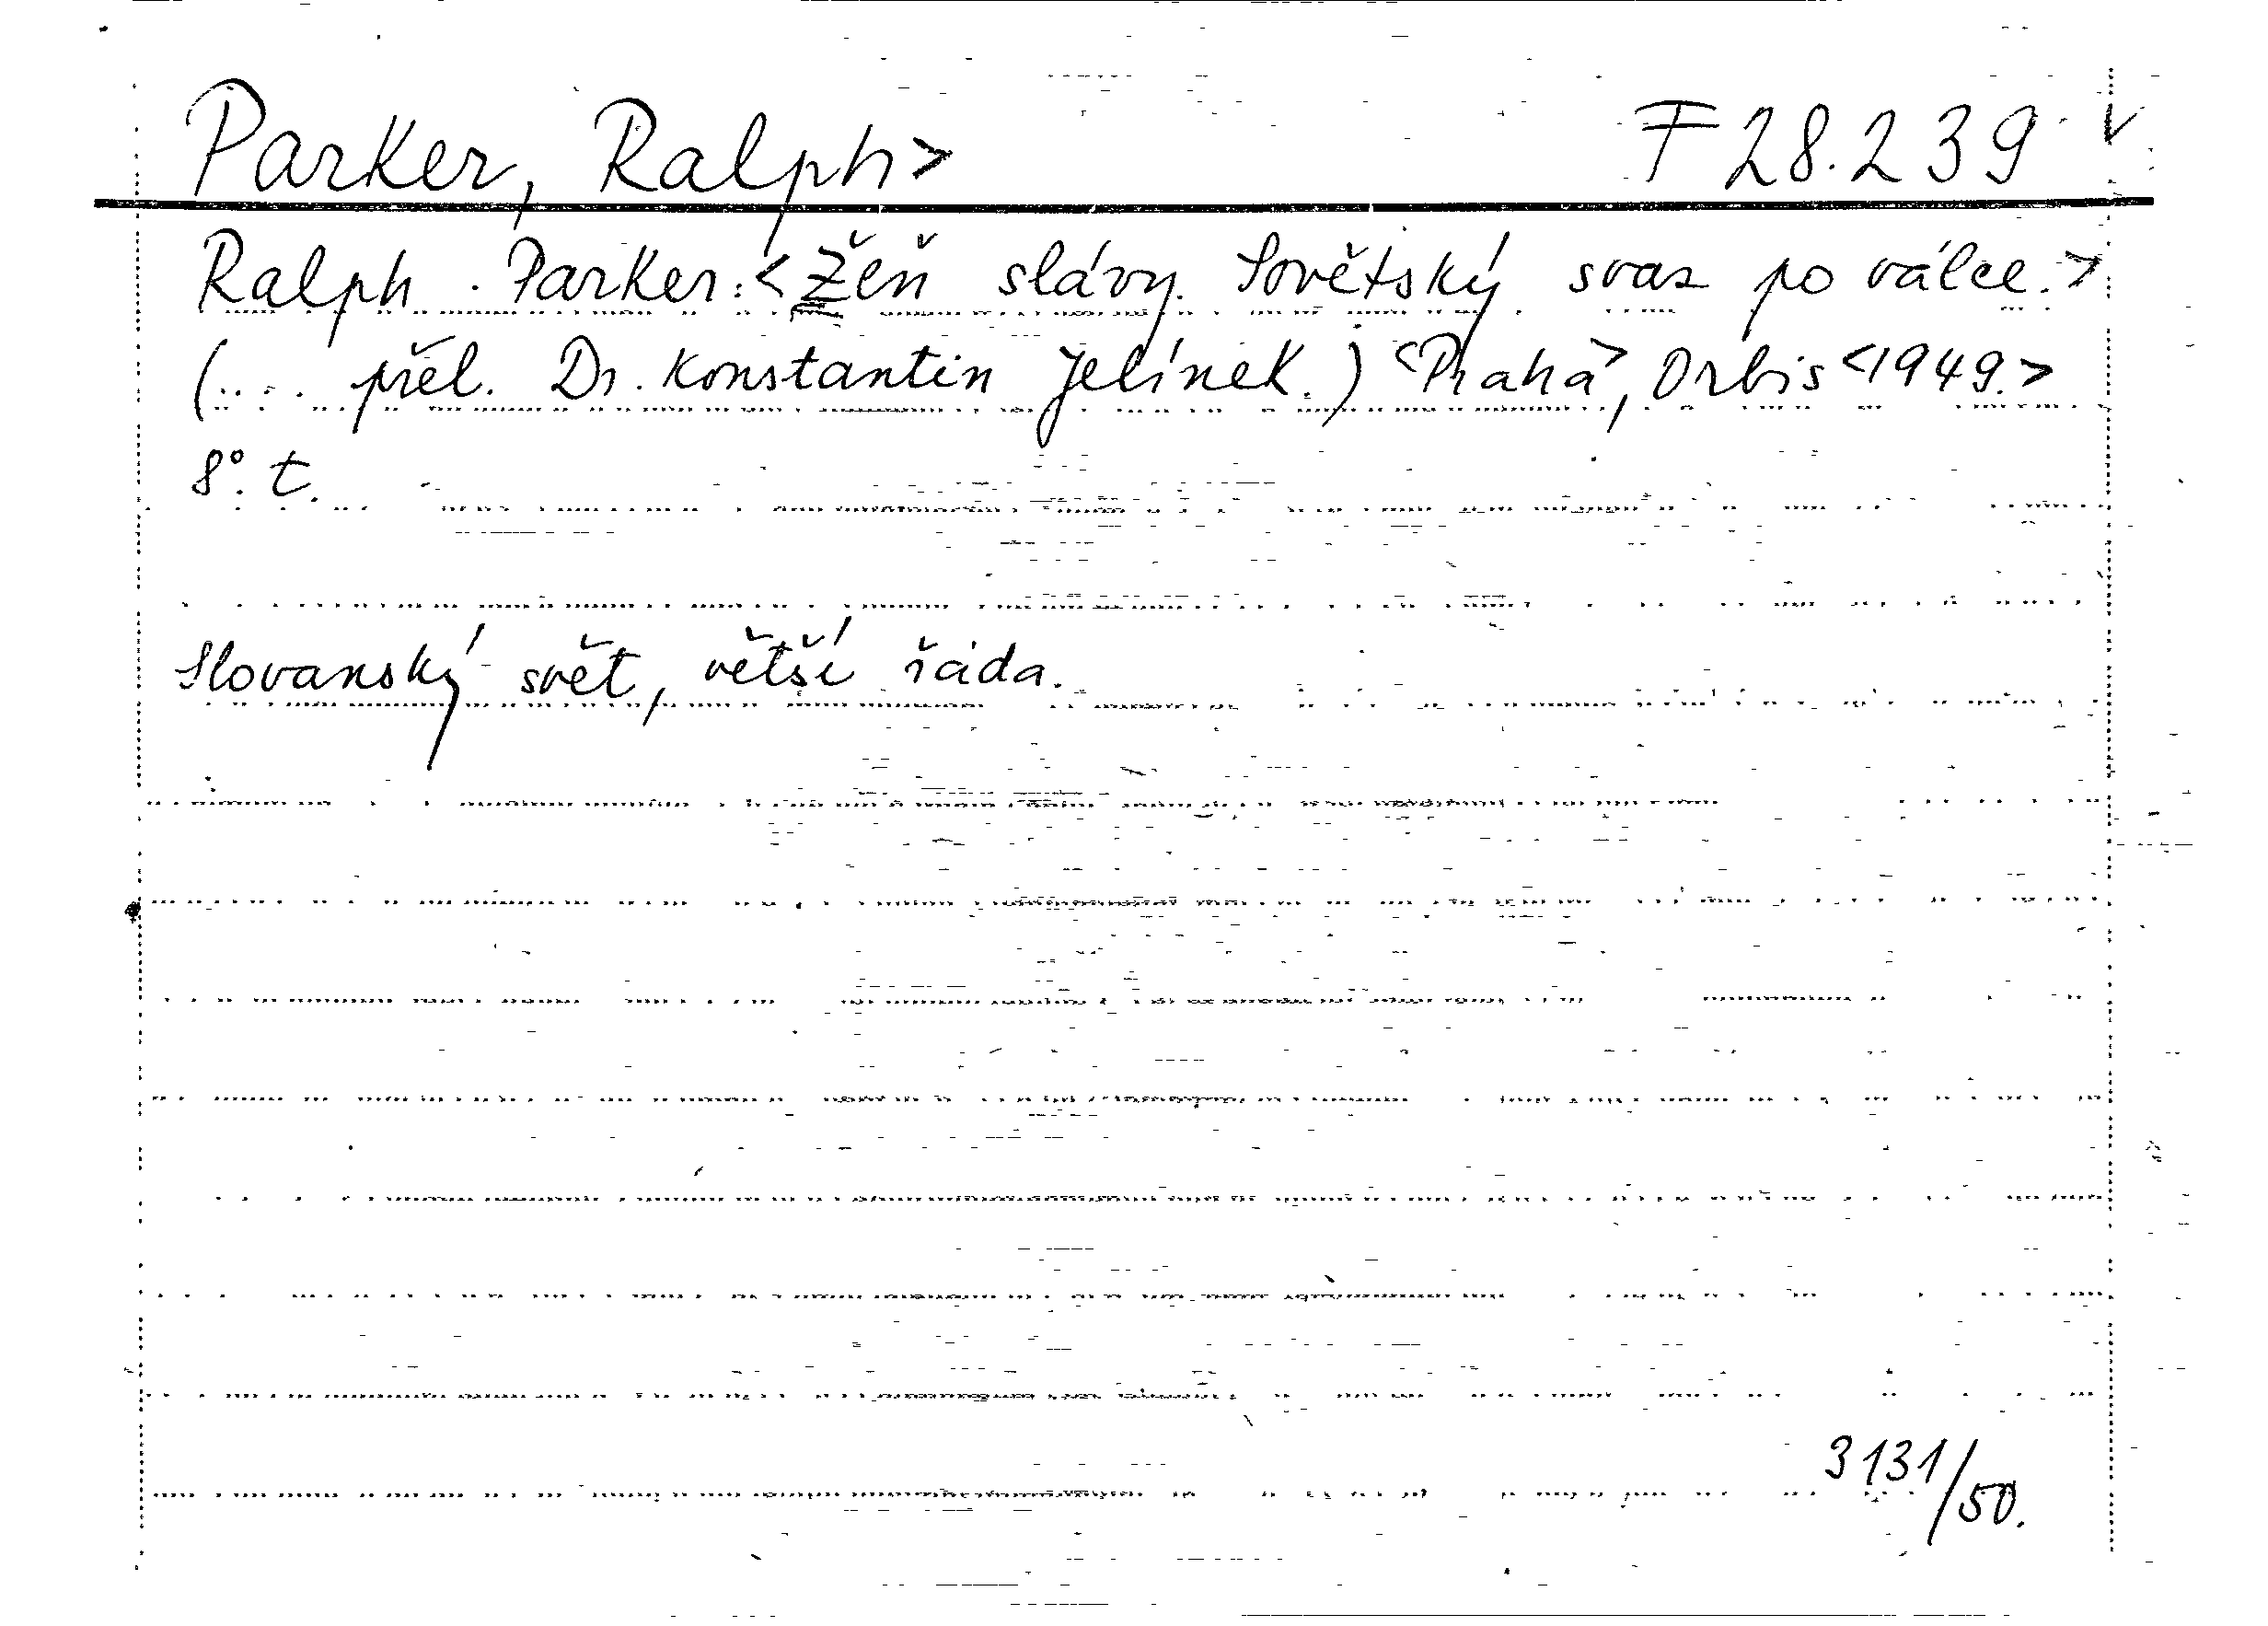 Parker, Ralph> F 28.239
Ralph Parker: <Žeň slávy. Sovětský svaz po válce.>
(... přel. Dr. Konstantin Jelínek.) <Praha>, Orbis <1949.>
8°. t.
Slovanský svět, větší řada.
3131/50.